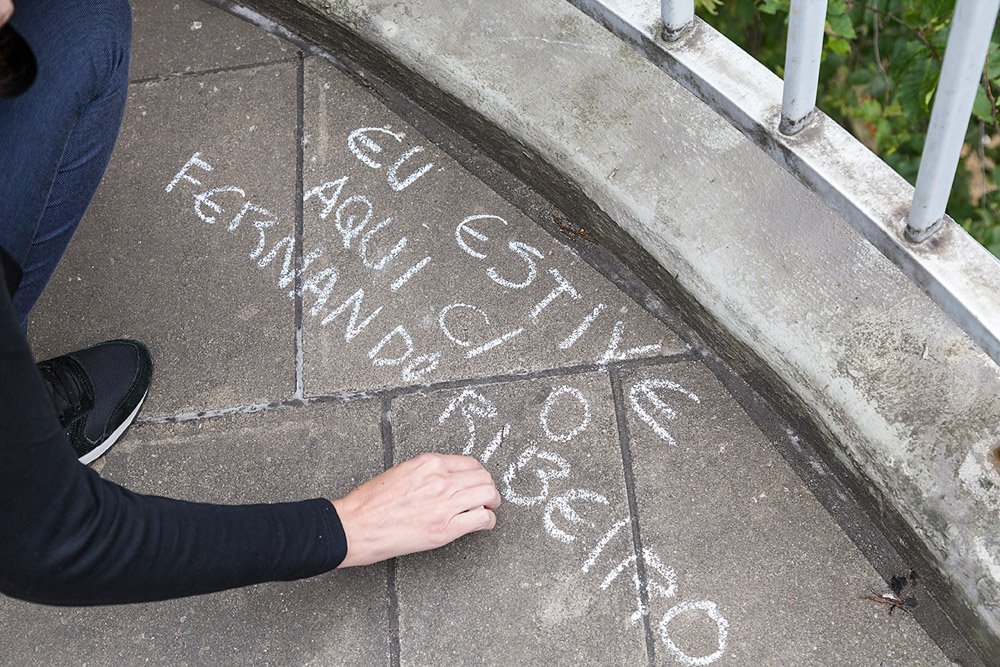 EU ESTIVE
AQUI O
FERNANDO RIBEIRO